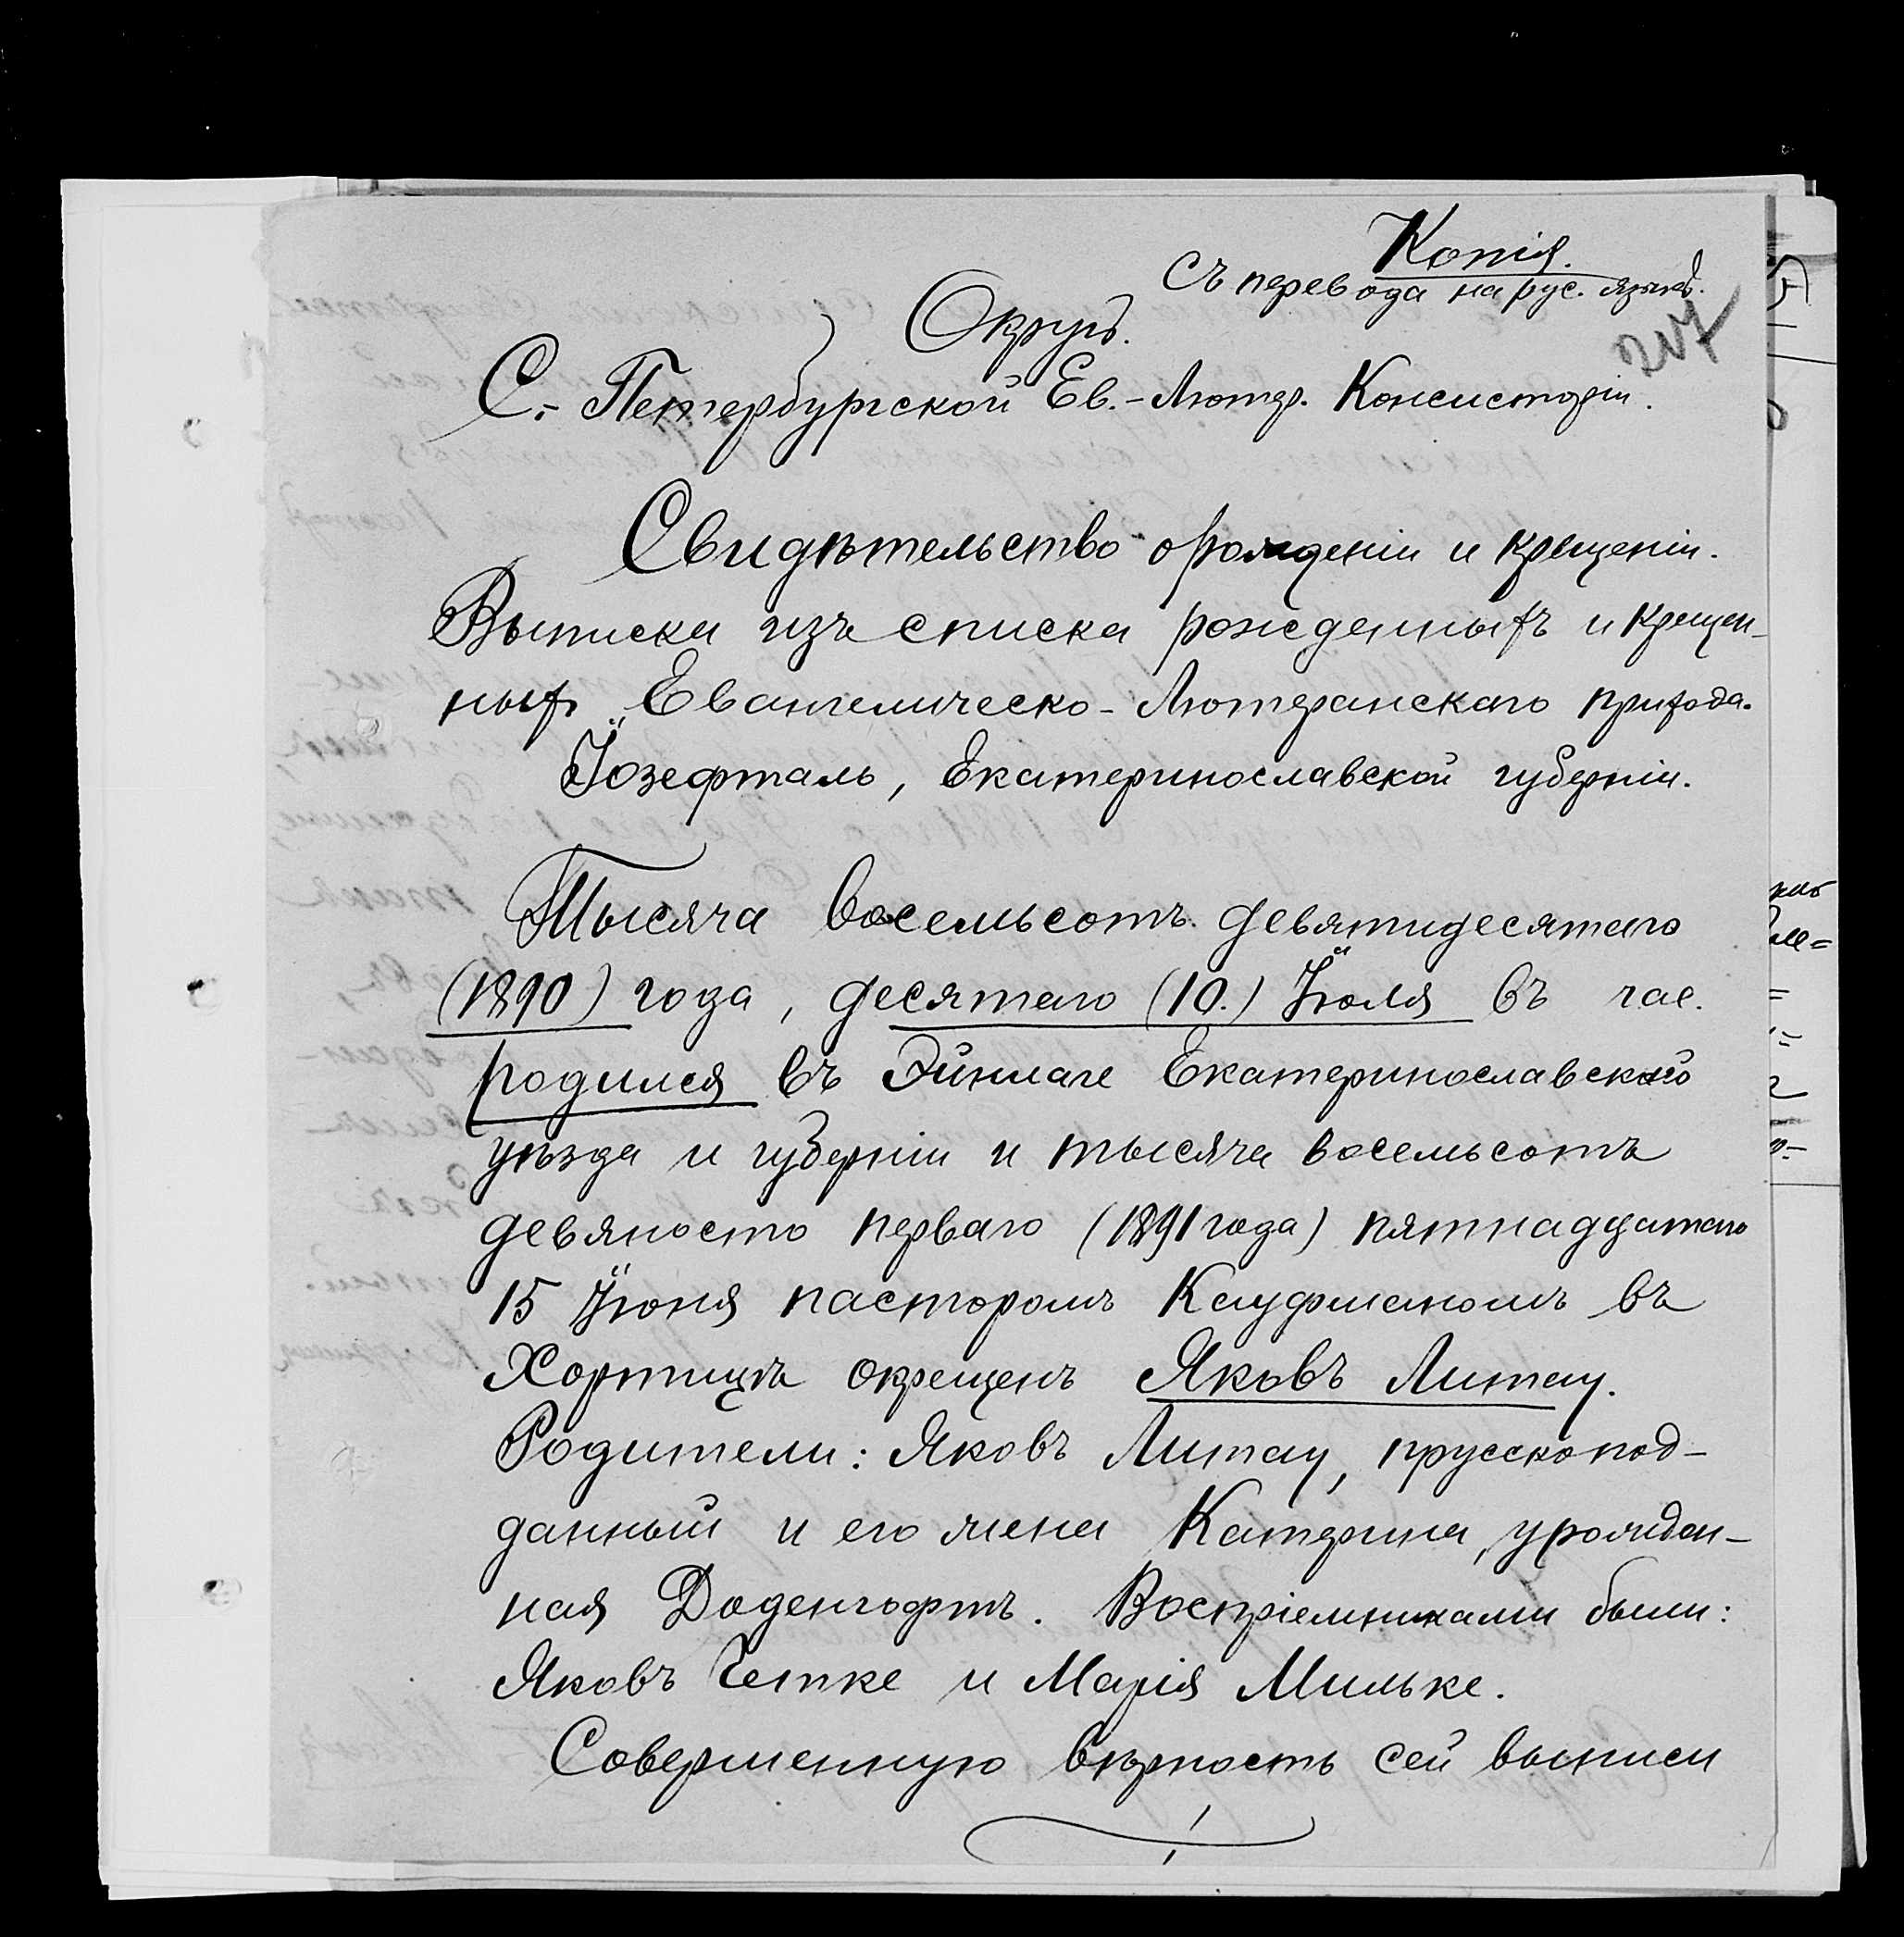 Копія.
Съ перевода на рус. языкъ.
247
Округъ.
С.-Петербургской Ев.-Лютер. Консисторіи.
Свидѣтельство о рожденіи и крещеніи.
Выписка изъ списка рожденныхъ и крещен-
ныхъ Евангелическо-Лютеранскаго прихода.
Іозефталь, Екатеринославской губерніи.
Тысяча восемьсотъ девятидесятаго
(1890) года, десятаго (10.) Іюля въ час.
родился въ Эйнлаге Екатеринославскаго
уѣзда и губерніи и тысяча восемьсотъ
девяносто перваго (1891 года) пятнадцатаго
15 Іюня пасторомъ Кауфманомъ въ
Хортицѣ окрещенъ Яковъ Литау.
Родители: Яковъ Литау, прусско под-
данный и его жена Катерина, урожден-
ная Доденгофтъ. Воспріемниками были:
Яковъ Гетке и Марія Мильке.
Совершенную вѣрность сей выписи